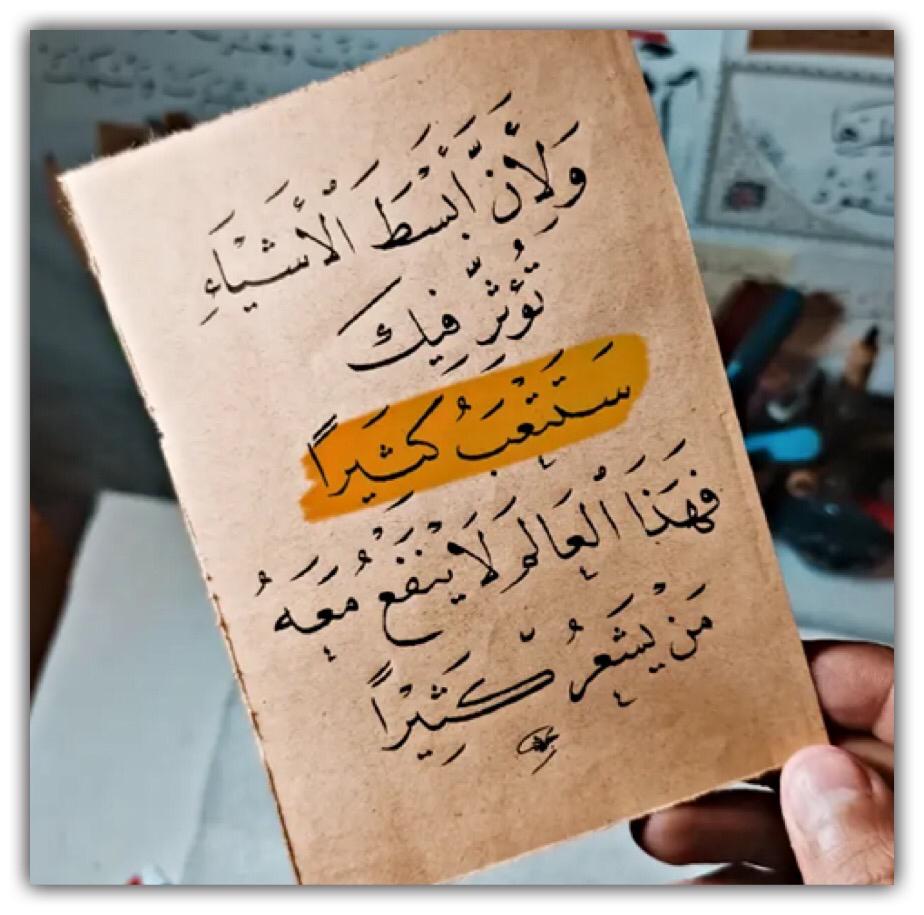 وَلِأَنَّ أَبْسَطَ الْأَشْيَاءِ
تُؤَثِّرُ فِيكَ
سَتَتْعَبُ كَثِيرَاً
فَهَذَا الْعَالَمُ لَا يَنْفَعُ مَعَهُ
مَنْ يَشْعُرُ كَثِيْرَاً